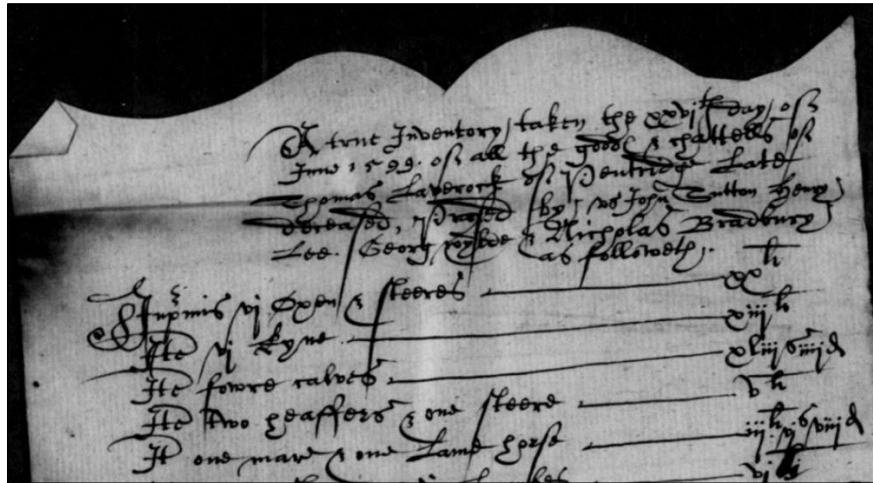 A true Inventory taken the xxvith day of
June 1599. of all the goods & chattells of
Thomas Laverock of Pentridge Late
deceased, Prysed by us John Sutton Henry
Lee. Georg Wylde & Nicholas Bradbury
as followeth. li
Inprimis vj Oxen & steeres xx
Ite vj Kyne xiij li
Ite fowre calves xliij s iiij d
Ite two heaffers & one steere v li
It one mare & one Lame horse iij li vj s viij d